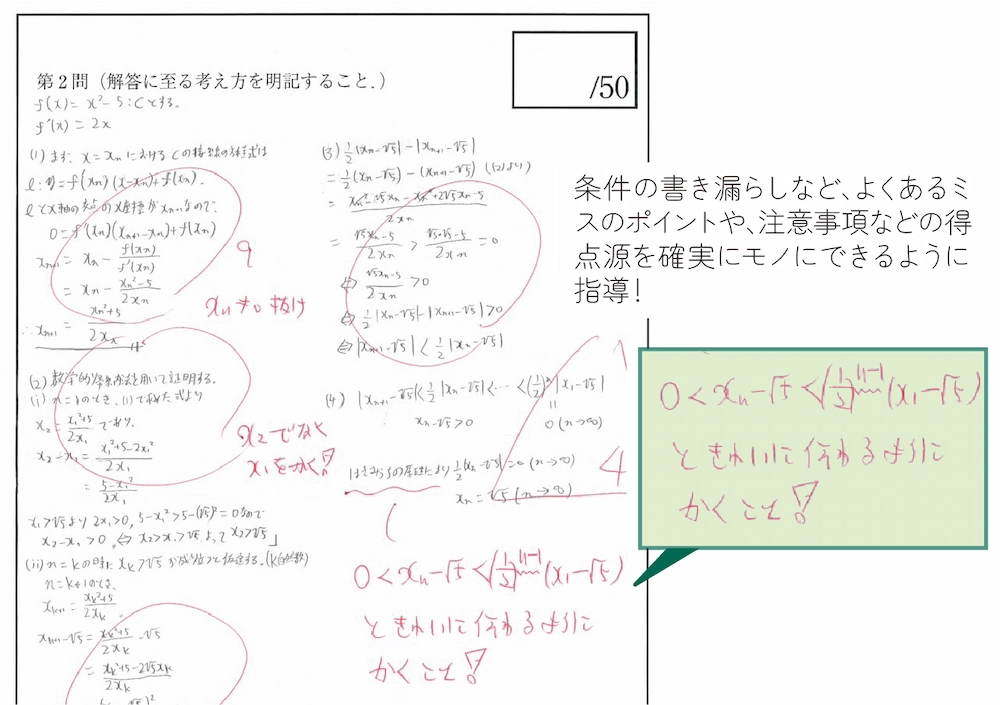 第2問（解答に至る考え方を明記すること.）
/50
f(x) = x²-5 : Cとする。
f'(x) = 2x
(1) まず、x = xₙ における Cの接線の方程式は
l: y = f'(xₙ)(x-xₙ)+f(xₙ).
lとx軸の交点のx座標がxₙ₊₁なので、
0 = f'(xₙ)(xₙ₊₁-xₙ)+f(xₙ)
xₙ₊₁ = xₙ - f(xₙ)/f'(xₙ)
= xₙ - (xₙ²-5)/2xₙ
∴ xₙ₊₁ = (xₙ²+5)/2xₙ
9
xₙ≠0 抜け
(2) 数学的帰納法を用いて証明する。
(i) n=1のとき、(1)で
x₂ = (x₁²+5)/2x₁ であり、
x₂-x₁ = (x₁²+5-2x₁²)/2x₁
= (5-x₁²)/2x₁
x₁>√5より 2x₁>0, 5-x₁²>5-(√5)²=0なので
x₂-x₁>0 ⇔ x₂>x₁>√5 よって x₂>√5」
x₂でなく
x₁をかく！
(ii) n=kの時に xₖ>√5 が成り立つと仮定する。(kは自然数)
n=k+1のとき、
xₖ₊₁ = (xₖ²+5)/2xₖ
xₖ₊₁-√5 = (xₖ²+5)/2xₖ - √5
= (xₖ²+5-2√5xₖ)/2xₖ
(3) ½|xₙ-√5|-|xₙ₊₁-√5|
= ½(xₙ-√5)-(xₙ₊₁-√5) ((2)より)
= (xₙ²-√5xₙ-xₙ²+2√5xₙ-5)/2xₙ
= (√5xₙ-5)/2xₙ > (√5·√5-5)/2xₙ = 0
⇔ (√5xₙ-5)/2xₙ > 0
⇔ ½|xₙ-√5|-|xₙ₊₁-√5|>0
⇔ |xₙ₊₁-√5| < ½|xₙ-√5|
(4) |xₙ₊₁-√5|<½|xₙ-√5|<…<(½)ⁿ|x₁-√5|
xₙ-√5>0
0 (n→∞)
はさみうちの原理により ½(xₙ-√5)=0 (n→∞)
xₙ = √5 (n→∞)
4
0<xₙ-√5<(½)ⁿ⁻¹(x₁-√5)
ときれいに伝わるように
かくこと！
条件の書き漏らしなど、よくあるミ
スのポイントや、注意事項などの得
点源を確実にモノにできるように
指導！
0<xₙ-√5<(½)ⁿ⁻¹(x₁-√5)
ときれいに伝わるように
かくこと！